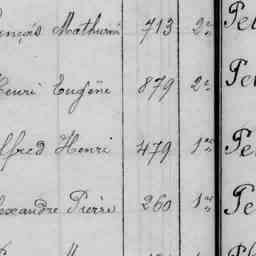 ençois Mathurin 713 2e Pe
enri Eugène 879 2e Pe
lfred Henri 479 1re Pe
lexandre Pierre 260 1re Pe